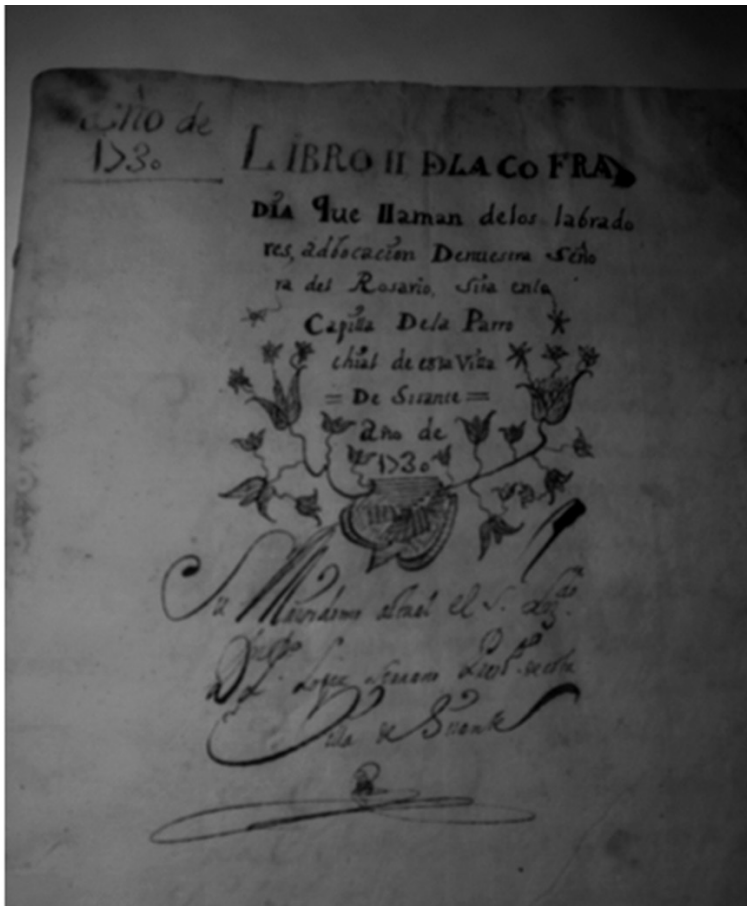 Año de
1730
LIBRO II DLA COFRA
DÍA que llaman delos labrado
res, adbocacion Denuestra Seño
ra del Rosario, sita enla
Capilla Dela Parro
chial de esta Villa
= De Sisante =
Año de
1730
Su Maiordomo actual el S.
Lopez
Villa de Sisante